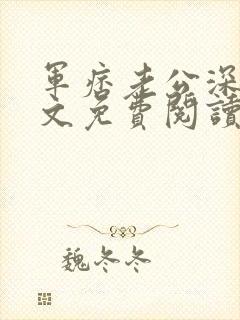 軍痞老公深
文免費閱讀
魏冬冬